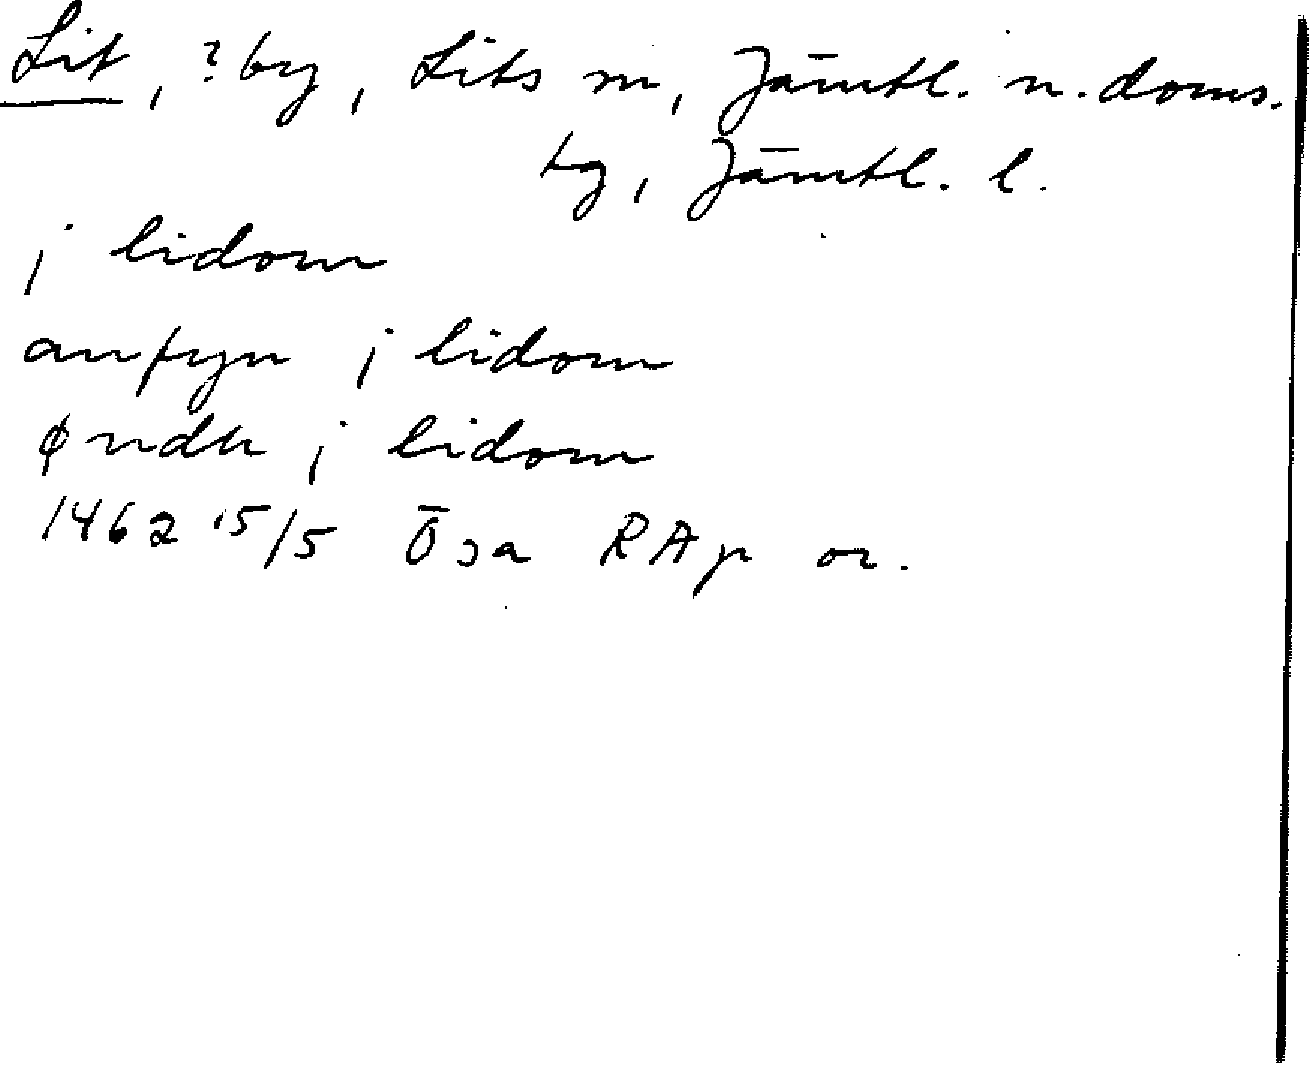 Lit, ? by, Lits sn, Jämtl. n. doms.
tg, Jämtl. l.
j lidom
j lidom
j lidom
1462 15/5 Ösa RAp or.